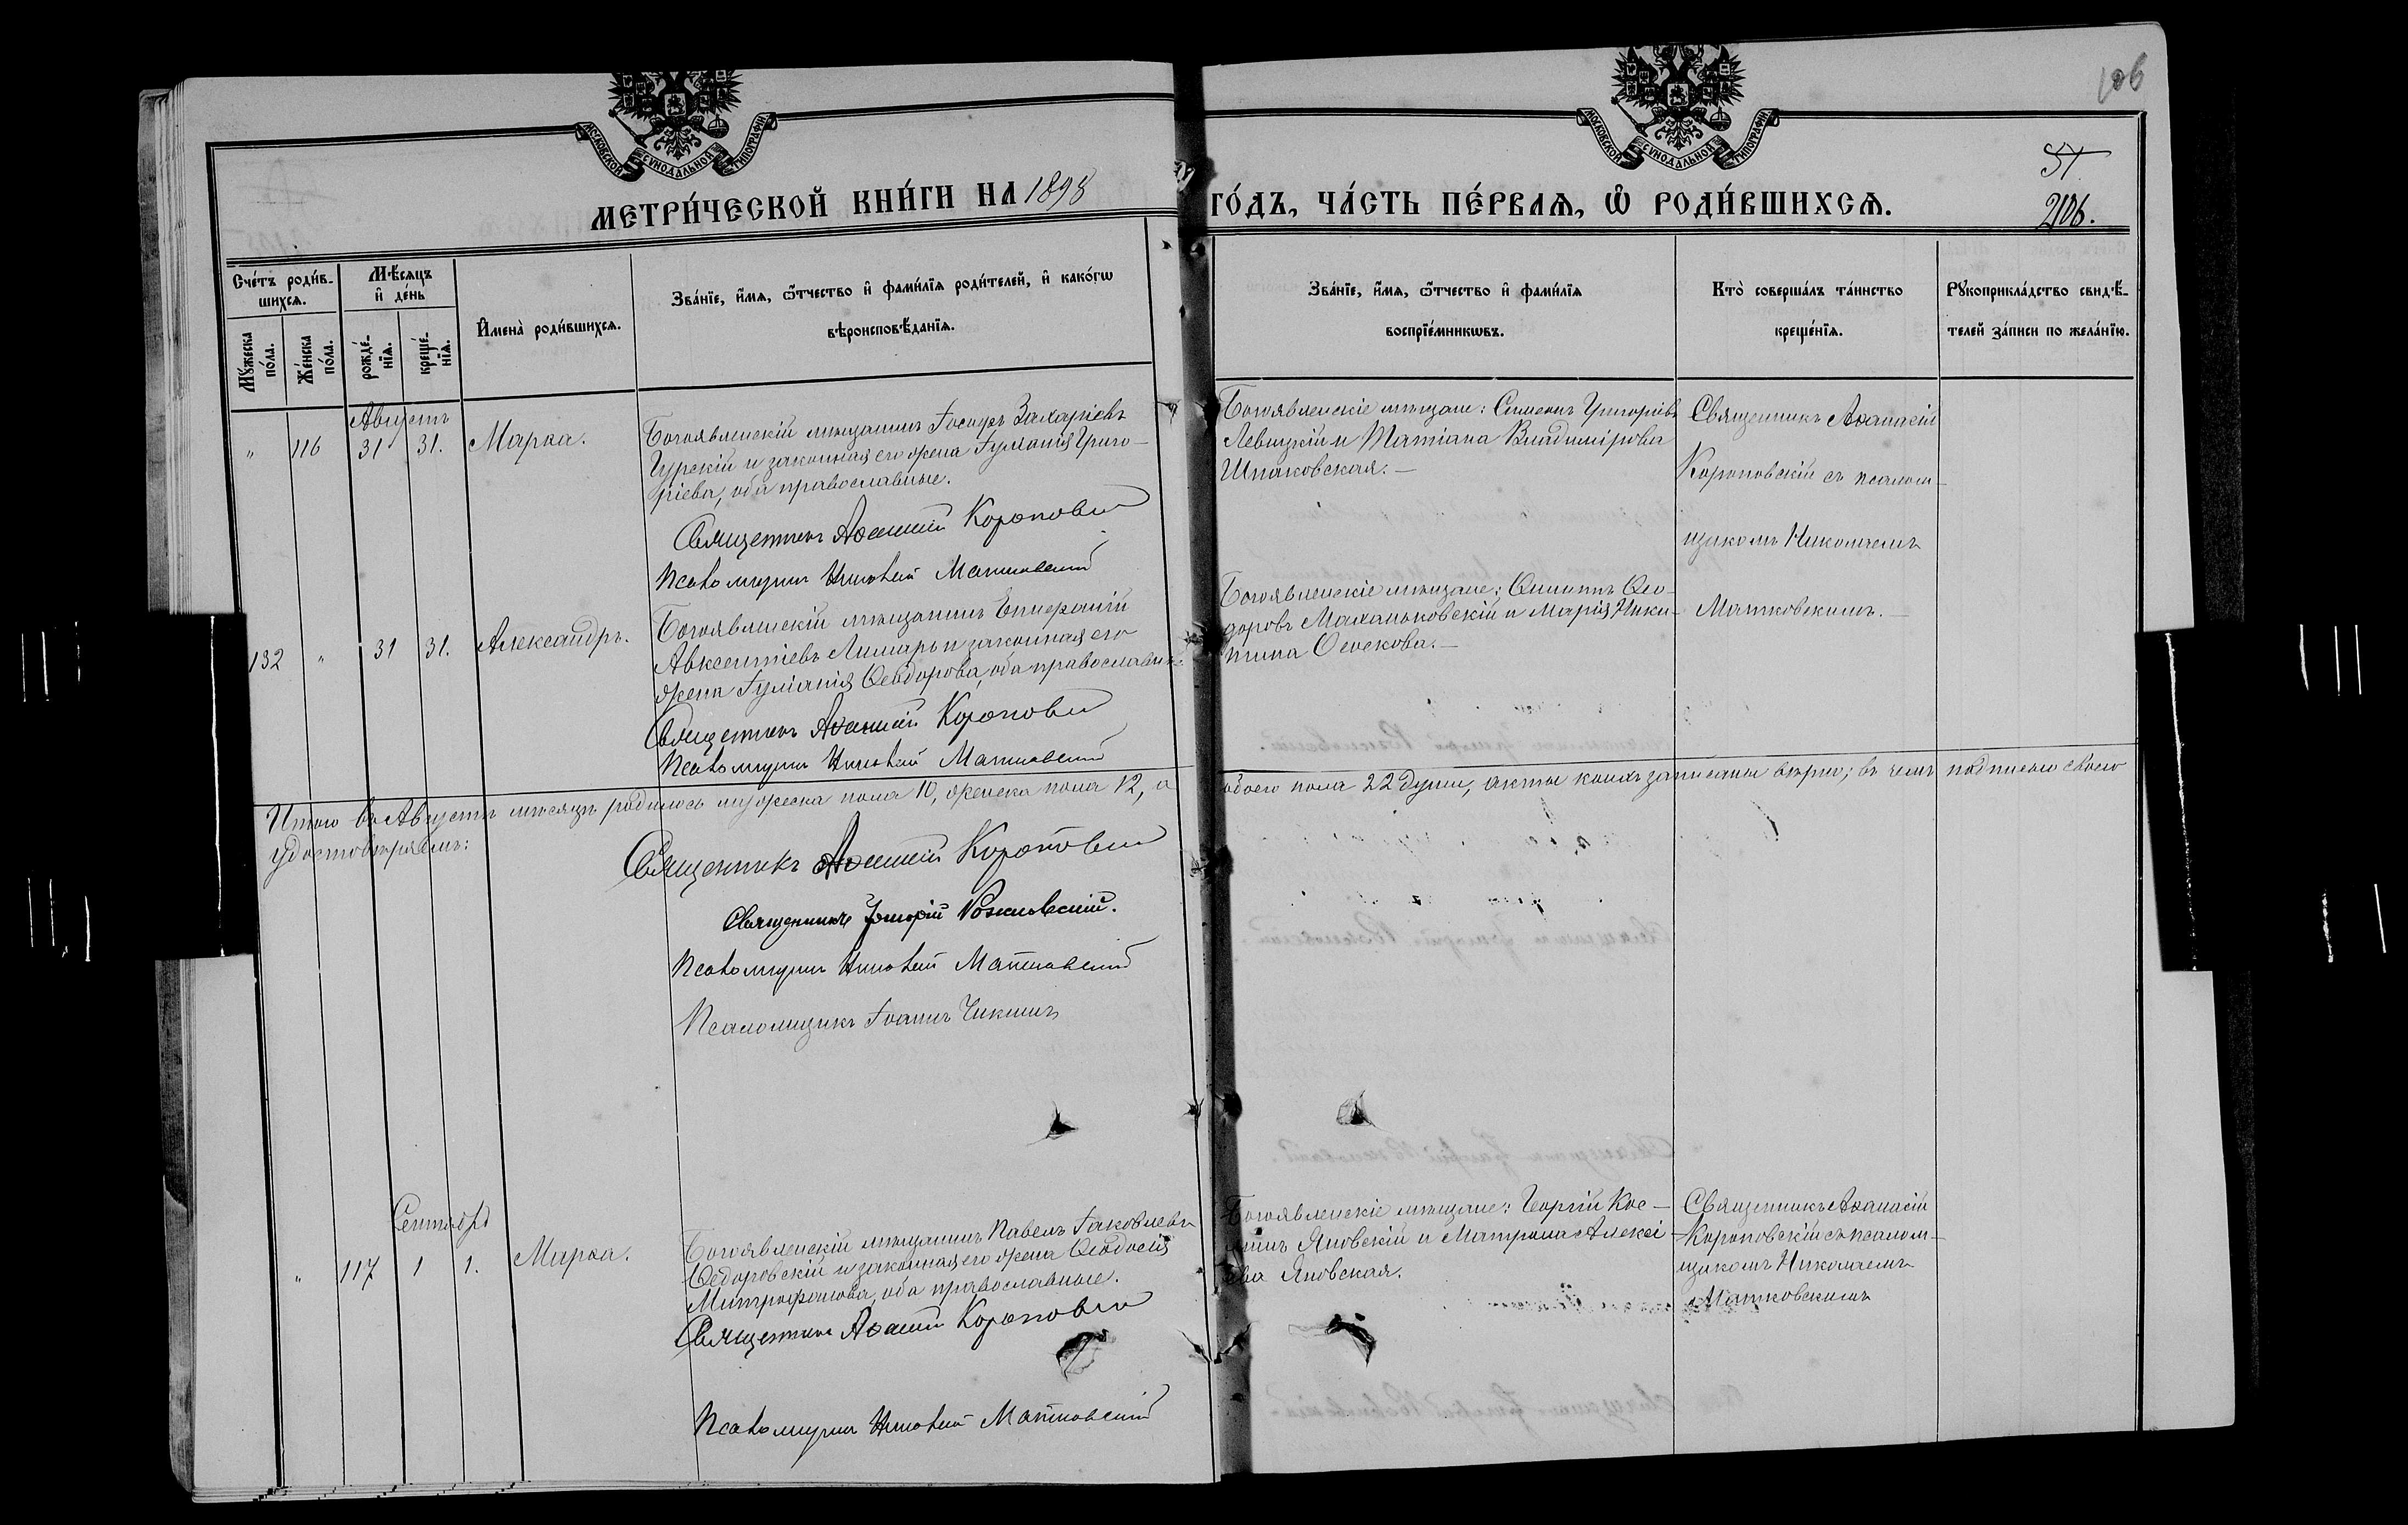 106
МОСКОВСКОЙ СѴНОДАЛЬНОЙ ТИПОГРАФІИ
МОСКОВСКОЙ СѴНОДАЛЬНОЙ ТИПОГРАФІИ
МЕТРИ́ЧЕСКОЙ КНИ́ГИ НА 1898 ГО́ДЪ, ЧА́СТЬ ПЕ́РВАЯ, Ѡ҆ РОДИ́ВШИХСЯ.
57
206.
Сче́тъ роди́в-
шихся.
Мѣ́сяцъ
и҆ де́нь
Мꙋ́жеска
по́ла.
Же́нска
по́ла.
рожде́-
нїя.
креще́-
нїя.
И҆мена̀ роди́вшихся.
Зва́нїе, и҆́мя, ѻ҆́тчество и҆ фами́лїя роди́телей, и҆ како́гѡ
вѣроисповѣ́данїя.
Зва́нїе, и҆́мя, ѻ҆́тчество и҆ фами́лїя
воспрїе́мникѡвъ.
Кто̀ соверша́лъ та́инство
креще́нїя.
Рꙋкоприкла́дство свидѣ́-
телей за́писи по жела́нїю.
Августъ
" 116 31 31. Марѳа.
Богоявленскій мѣщанинъ Іосифъ Захаріевъ
Гурскій и законная его жена Іуліанія Григо-
ріева, оба православные.
Священникъ Аѳанасій Короповскій
Псаломщикъ Николай Матковскій
Богоявленскіе мѣщане: Симеонъ Григоріевъ
Левицкій и Татіана Владимірова
Шпаковская.—
Священникъ Аѳанасій
Короповскій съ псалом-
щикомъ Николаемъ
Матковскимъ.—
132 " 31 31. Александръ.
Богоявленскій мѣщанинъ Епифаній
Авксентіевъ Лимарь и законная его
жена Іуліанія Ѳеодорова, оба православные.
Священникъ Аѳанасій Короповскій
Псаломщикъ Николай Матковскій
Богоявленскіе мѣщане: Филиппъ Ѳео-
доровъ Маханьковскій и Марія Ники-
тина
Итого въ Августѣ мѣсяцѣ родилось мужеска пола 10, женска пола 12, а обоего пола 22 души, акты коихъ записаны вѣрно; въ чемъ подписью своею
удостовѣряемъ:
Священникъ Аѳанасій Короповскій
Священникъ Григорій
Псаломщикъ Николай Матковскій
Псаломщикъ Іоаннъ
Сентябрь
" 117 1 1. Марѳа.
Богоявленскій мѣщанинъ Павелъ Іаковлевъ
Ѳедоровскій и законная его жена Ѳеодосія
Митрофанова, оба православные.
Священникъ Аѳанасій Короповскій
Псаломщикъ Николай Матковскій
Богоявленскіе мѣщане: Георгій Кос-
минъ Яновскій и Матрона Алексі-
ева Яновская.
Священникъ Аѳанасій
Короповскій съ псалом-
щикомъ Николаемъ
Матковскимъ